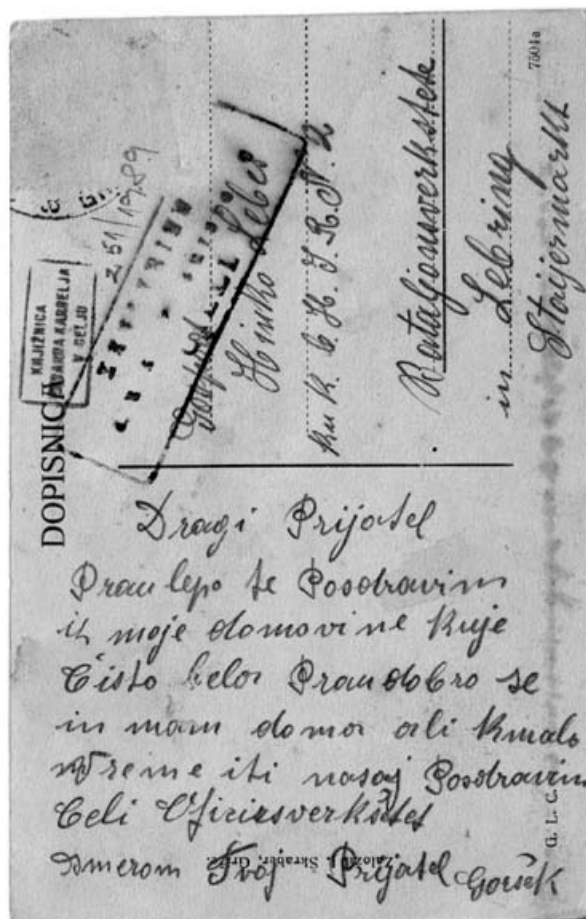 DOPISNICA
KNJIŽNICA
EDVARDA KARDELJA
V CELJU
Z 51/1989
Hinko Leber
k u k. C. H. I. R. N. 2
Bataljonsverkstete
in Lebring
Staijermarkt
7504a
Dragi Prijatel
Prau lepo te Posdravim
is moje domovine kuje
Čisto bela Prau dobro se
in mam doma ali kmalo
Vreme iti nasaj Posdravim
Celi Ofizirsverkstet
Smerom Tvoj Prijatel Goršek
Založil I. Škraber, Gratz.
G. L. C.